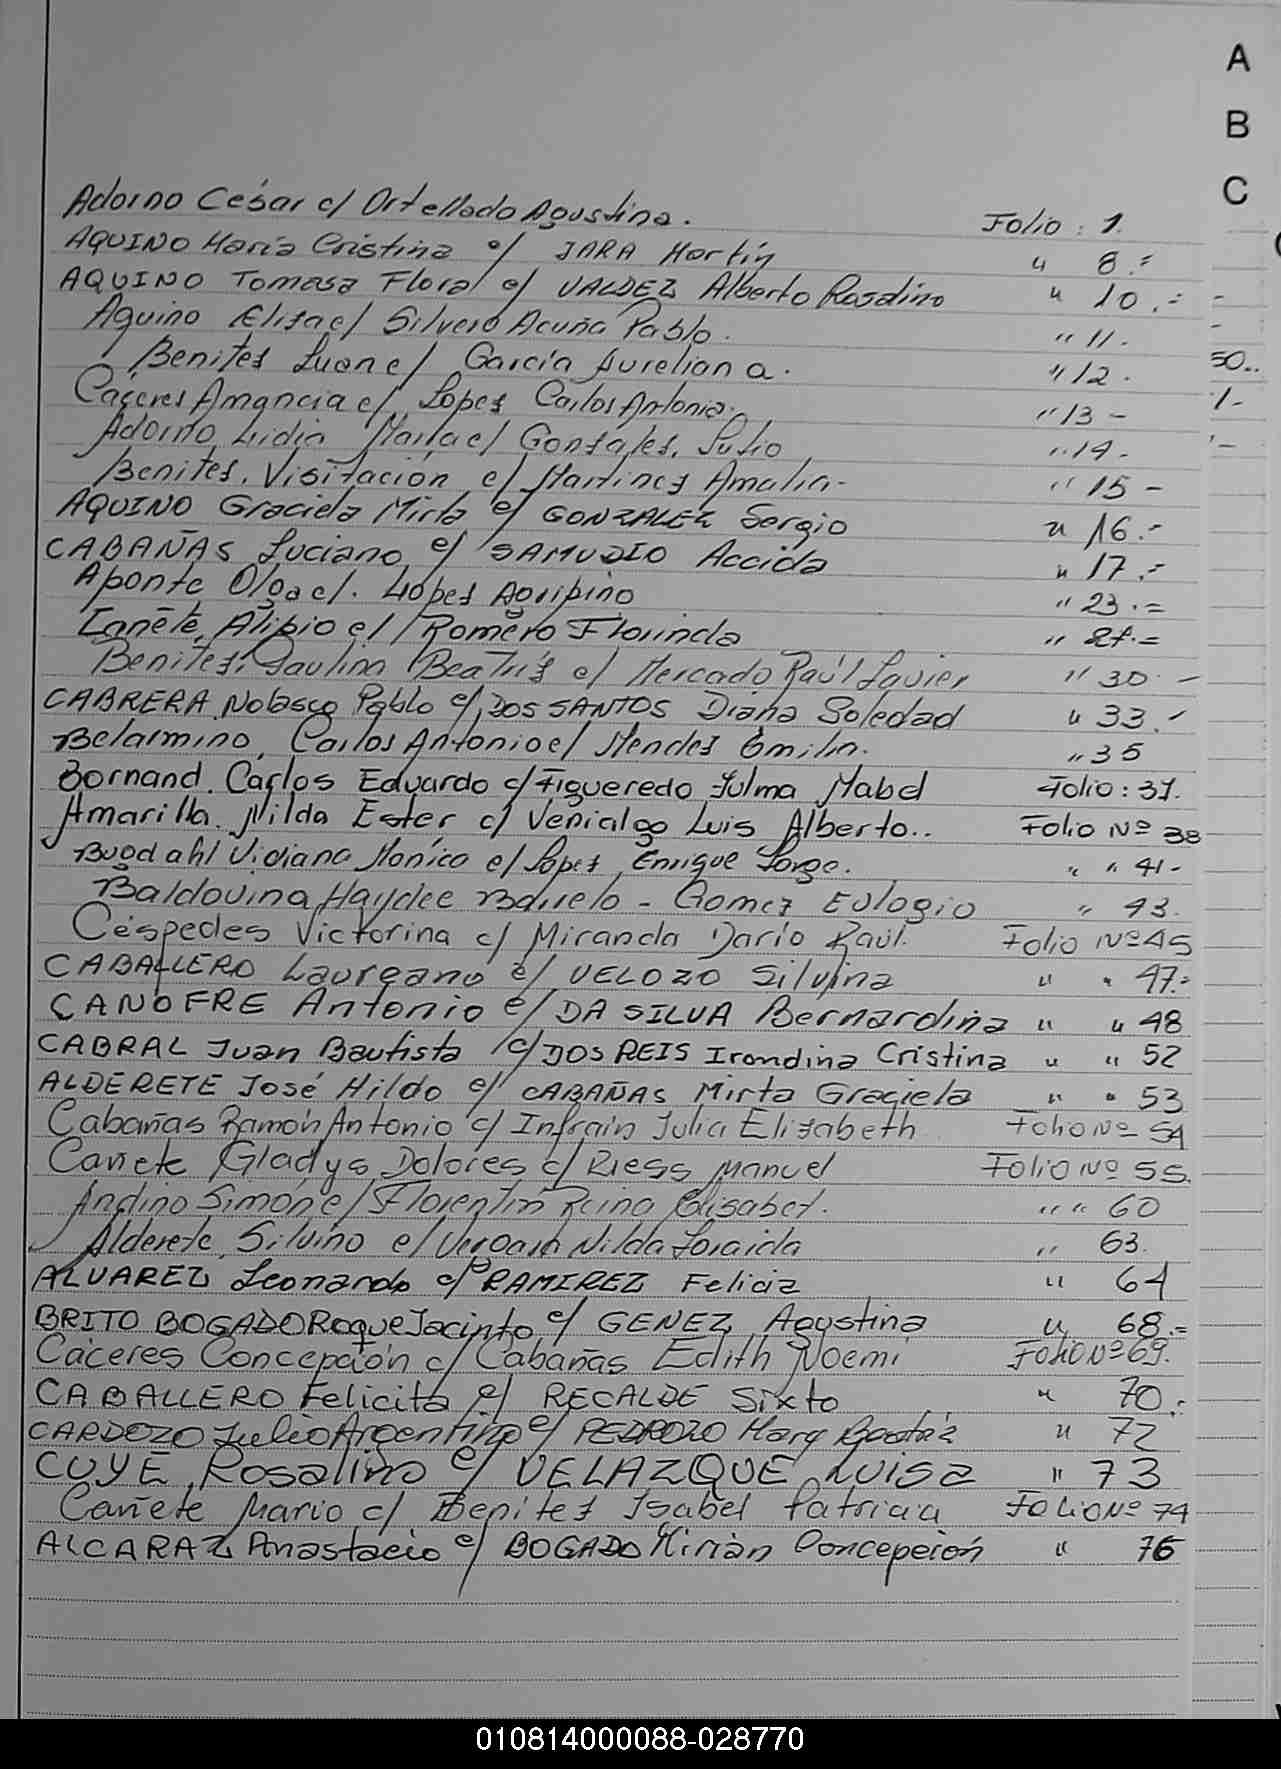 A
B
C
Adorno César c/ Ortellado Agustina. Folio: 1.
AQUINO María Cristina c/ JARA Martín " 8.=
AQUINO Tomasa Flora c/ VALDEZ Alberto Rosalino " 10.=
Aquino Elisa c/ Silvero Acuña Pablo. " 11.
Benites Juan c/ García Aureliana. " 12.
Cáceres Amancia c/ Lopes Carlos Antonio. " 13-
Adorno, Lidia María c/ Gonsales, Julio " 14.
Benites, Visitación c/ Martines Amalia- " 15-
AQUINO Graciela Mirta c/ GONZALEZ Sergio " 16.=
CABAÑAS Luciano c/ SAMUDIO Accida " 17.=
Aponte Olga c/. Lopes Agripino " 23.=
Cañete, Alipio c/ Romero Florinda " 27.=
Benites, Paulina Beatris c/ Mercado Raúl Javier " 30.-
CABRERA Nolasco Pablo c/ DOS SANTOS Diana Soledad " 33.-
Belarmino, Carlos Antonio c/ Mendes Emilia. " 35
Bornand. Carlos Eduardo c/ Figueredo Julma Mabel Folio: 37.
Amarilla. Nilda Ester c/ Venialgo Luis Alberto.. Folio Nº 38
Bugdahl Viviana Monica c/ Lopes, Enrique Jorge. " " 41-
Baldovina Haydee Barrelo - Gomez Eulogio " 43.
Céspedes Victorina c/ Miranda Darío Raúl. Folio Nº 45
CABALLERO Laureano c/ VELOZO Silvina " " 47.=
CANOFRE Antonio c/ DA SILVA Bernardina " " 48
CABRAL Juan Bautista c/ DOS REIS Irondina Cristina " " 52
ALDERETE José Hildo c/ CABAÑAS Mirta Graciela " " 53
Cabañas Ramón Antonio c/ Infrain Julia Elizabeth Folio Nº 54
Cañete Gladys Dolores c/ Riess Manuel Folio Nº 55.
Andino Simón c/ Florentín Reina Elisabet. " " 60
Alderete, Silvino c/ Vergara Nilda Soraida " 63.
ALVAREZ Leonardo c/ RAMIREZ Felicia " 64
BRITO BOGADO Roque Jacinto c/ GENEZ Agustina " 68.=
Cáceres Concepción c/ Cabañas Edith Noemi Folio Nº 69.
CABALLERO Felicita c/ RECALDE Sixto " 70.=
CARDOZO Julio Argentino c/ PEDROZO Mary Beatriz " 72
CUYE Rosalino c/ VELAZQUE Luisa " 73
Cañete Mario c/ Benites Isabel Patricia Folio Nº 74
ALCARAZ Anastacio c/ BOGADO Mirian Concepción " 76
50..
1-
010814000088-028770